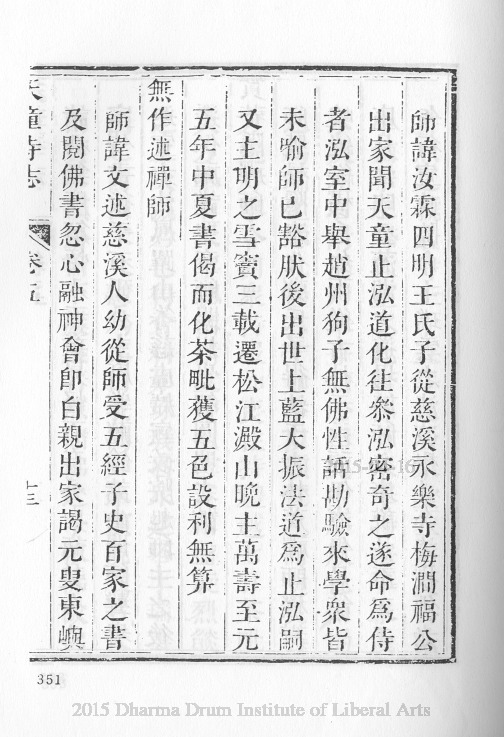 師諱汝霖四明王氏子從慈溪永樂寺梅澗福公
出家聞天童止泓道化往叅泓密奇之遂命爲侍
者泓室中舉趙州狗子無佛性話勘驗來學衆皆
未喻師已豁肰後出世上藍大振法道爲止泓嗣
又主明之雪竇三載遷松江澱山晚主萬壽至元
五年中夏書偈而化茶毗獲五色設利無算
無作述禪師
師諱文述慈溪人幼從師受五經子史百家之書
及閱佛書忽心融神會卽白親出家謁元叟東嶼
天童寺志
卷五
十三
351
2015 Dharma Drum Institute of Liberal Arts